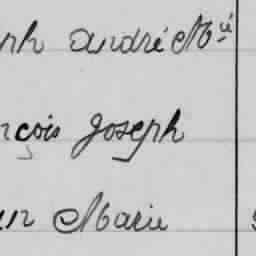 ph andré Mie
nçois Joseph
un Marie